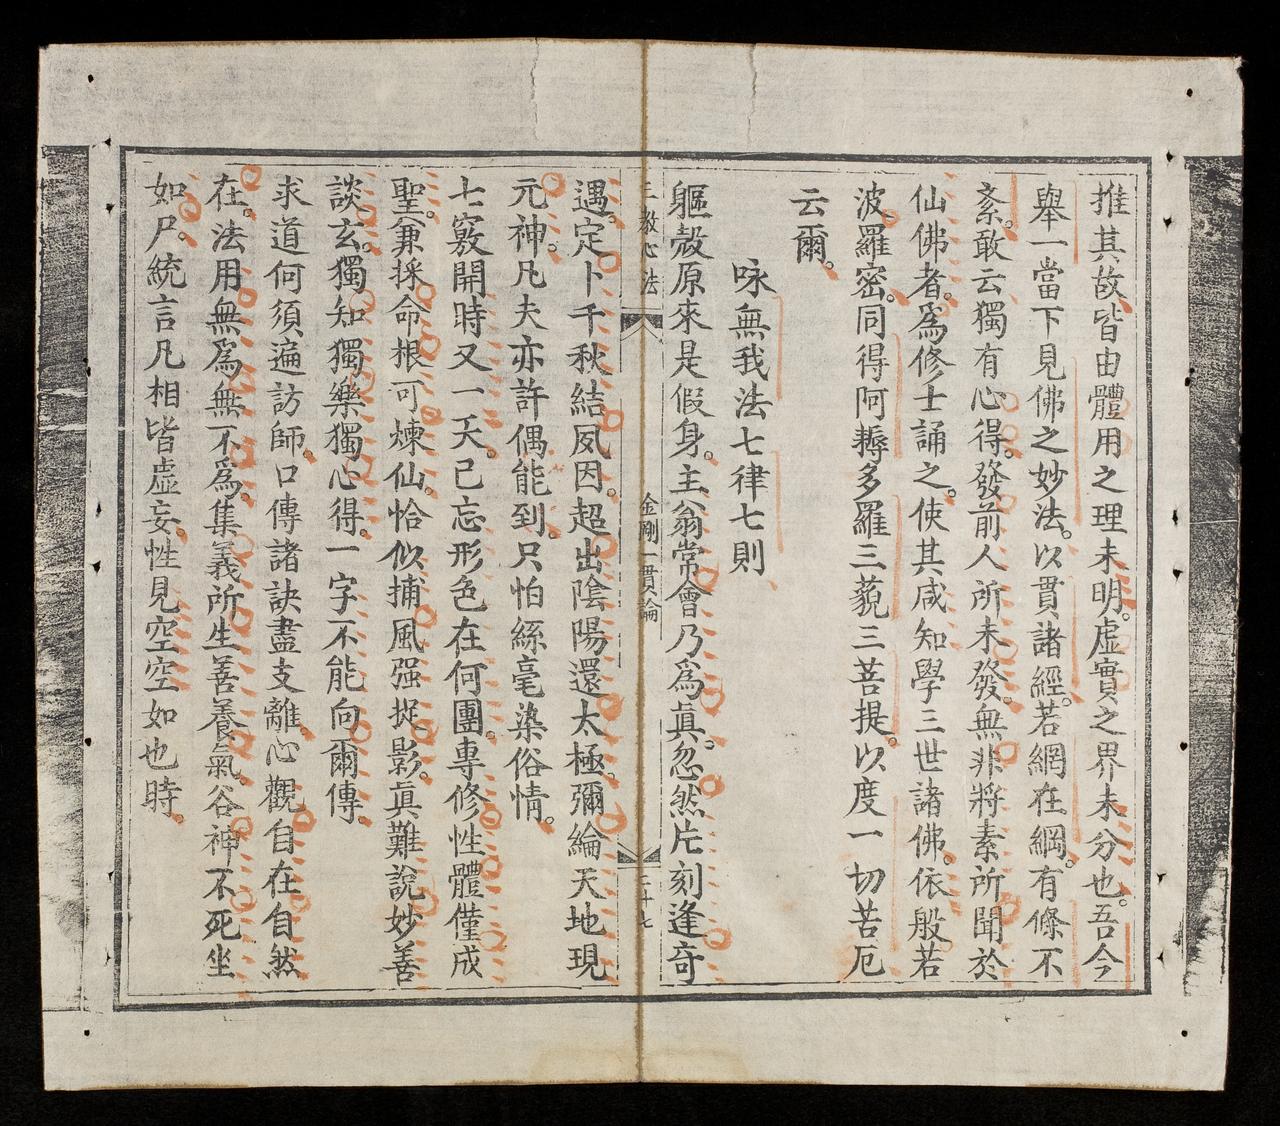 推其故皆由體用之理未明。虛實之界未分也。吾今
舉一當下見佛之妙法。以貫諸經。若網在綱。有條不
紊。敢云獨有心得。發前人所未發。無非將素所聞於
仙佛者。爲修士誦之。使其咸知學三世諸佛。依般若
波羅密。同得阿耨多羅三藐三菩提。以度一切苦厄
云爾。
咏無我法七律七則
軀殼原來是假身。主翁常會乃爲眞。忽然片刻逢奇
三教心法
金剛一貫論
二十七
遇。定卜千秋結夙因。超出陰陽還太極。彌綸天地現
元神。凡夫亦許偶能到。只怕絲毫染俗情。
七竅開時又一天。已忘形色在何團。專修性體僅成
聖。兼採命根可煉仙。恰似捕風强捉影。眞難說妙善
談玄。獨知獨樂獨心得。一字不能向爾傳。
求道何須遍訪師。口傳諸訣盡支離。心觀自在自然
在。法用無爲無不爲。集義所生善養氣。谷神不死坐
如尸。統言凡相皆虛妄。性見空空如也時。